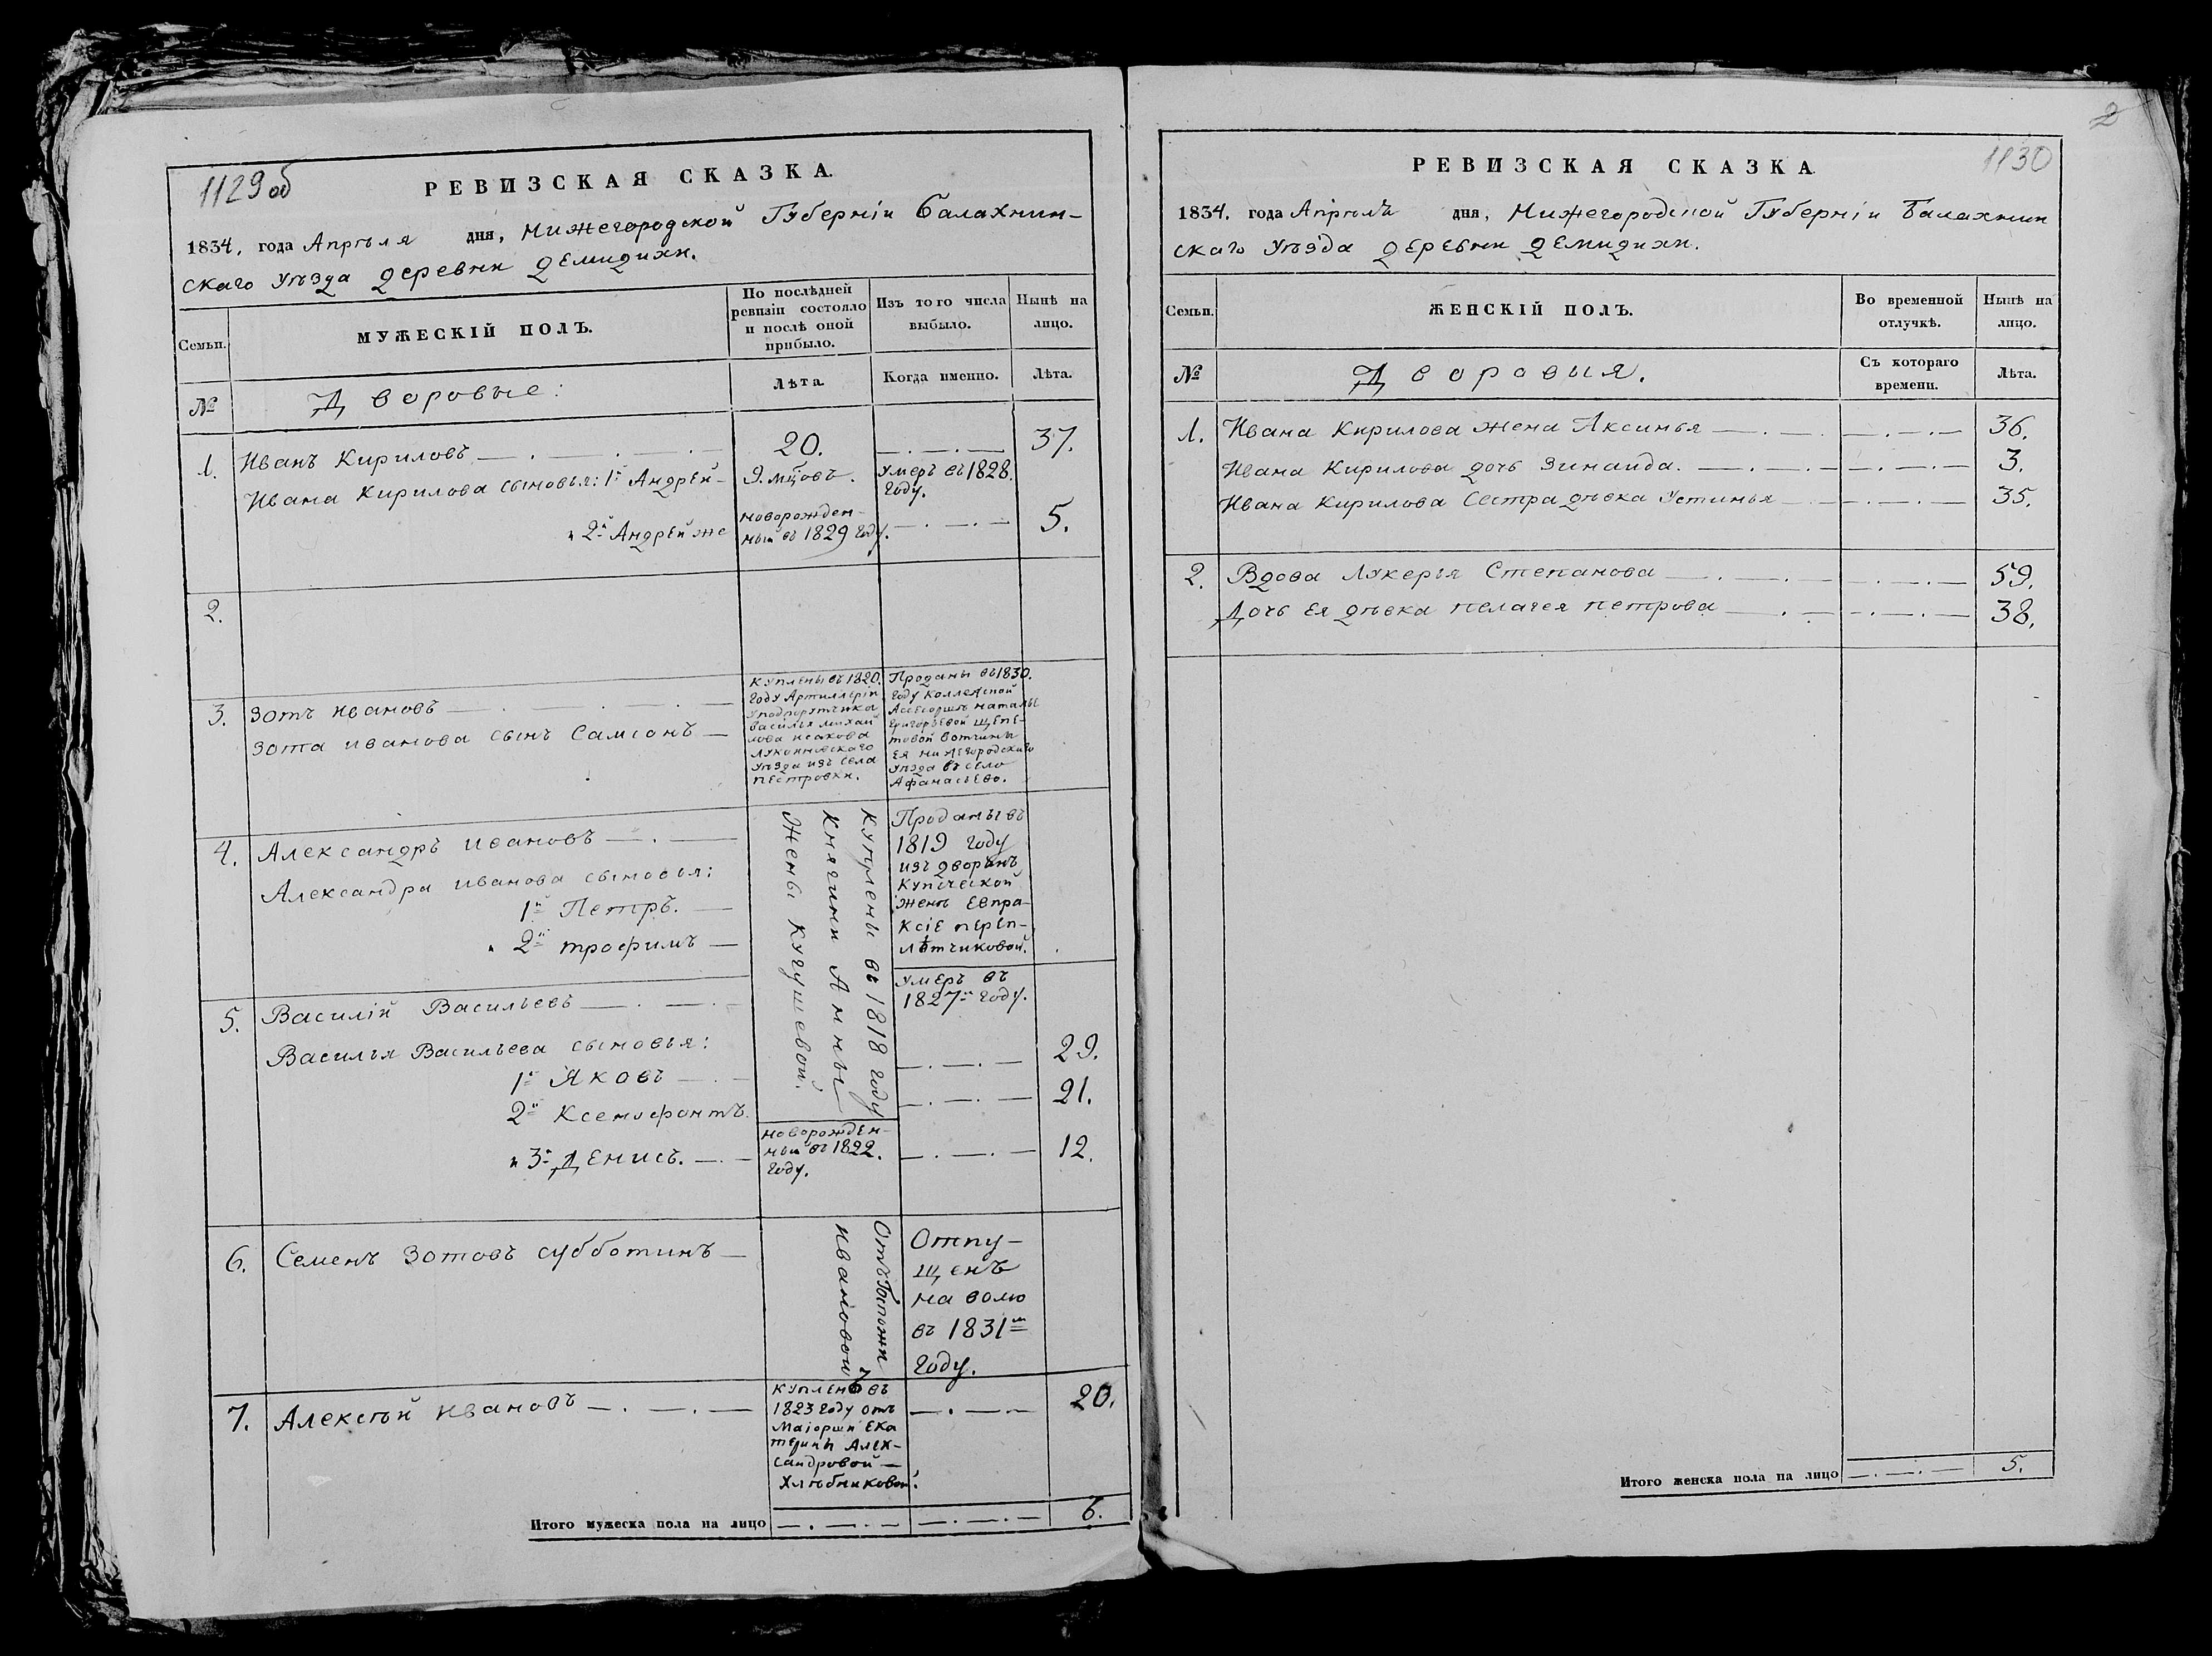 1129 об
РЕВИЗСКАЯ СКАЗКА.
1834, года Апрѣля дня, Нижегородской Губерніи Балахнин-
скаго Уѣзда деревни Демидихи.
Семьи.
МУЖЕСКІЙ ПОЛЪ.
По послѣдней
ревизіи состояло
и послѣ оной
прибыло.
Изъ того числа
выбыло.
Нынѣ на
лицо.
№
Дворовые:
Лѣта.
Когда именно.
Лѣта.
1. Иванъ Кириловъ 20. 37.
Ивана Кирилова сыновья: 1й Андрей 9. мцовъ. умеръ въ 1828.
году.
и 2й Андрей же
новорожден-
ный въ 1829 году. 5.
2.
3. Зотъ Ивановъ
Зота Иванова сынъ Самсонъ
Куплены въ 1820.
году Артиллеріи
Уподпорутчика
Василья Михай
лова Исакова
Лукояновскаго
Уѣзда изъ села
Пестровки.
Проданы въ 1830.
году Коллежской
Асесоршѣ Натальѣ
Григорьевой Щепе-
товой вотчины
ея Нижегородскаго
Уѣзда въ село
Афанасьево.
4. Александръ Ивановъ
Александра Иванова сыновья:
1й Петръ.
и 2й Трофимъ
Куплены въ 1818 году
Княгини Анны
Жены Кугушевой.
Проданы въ
1819 году
изъ дворянъ
Купеческой
женѣ Евпра-
ксіе Переп-
лётчиковой.
5. Василій Васильевъ
Умеръ въ
1827м году.
Василья Васильева сыновья:
1й Яковъ 29.
2й Ксенофонтъ 21.
и 3й Денисъ.
новорожден-
ный въ 1822.
году. 12.
6. Семенъ Зотовъ Субботинъ
Отъ Госпожи
Ивановой
Отпу-
щенъ
на волю
въ 1831м
году.
7. Алексѣй Ивановъ
Купленъ въ
1823 году отъ
Маіорши Ека
терины Алек-
сандровой
Хлѣбниковой. 20.
Итого мужеска пола на лицо 6.
2
1130
РЕВИЗСКАЯ СКАЗКА.
1834. года Апрѣль дня, Нижегородской Губерніи Балахнин
скаго Уѣзда деревни Демидихи.
Семьи.
ЖЕНСКІЙ ПОЛЪ.
Во временной
отлучкѣ.
Нынѣ на
лицо.
№
Дворовыя.
Съ котораго
времени.
Лѣта.
1. Ивана Кирилова жена Аксинья 36.
Ивана Кирилова дочь Зинаида. 3.
Ивана Кирилова Сестра дѣвка Устинья 35.
2. Вдова Лукерья Степанова 59.
Дочь ея дѣвка Пелагея Петрова 38.
Итого женска пола на лицо 5.